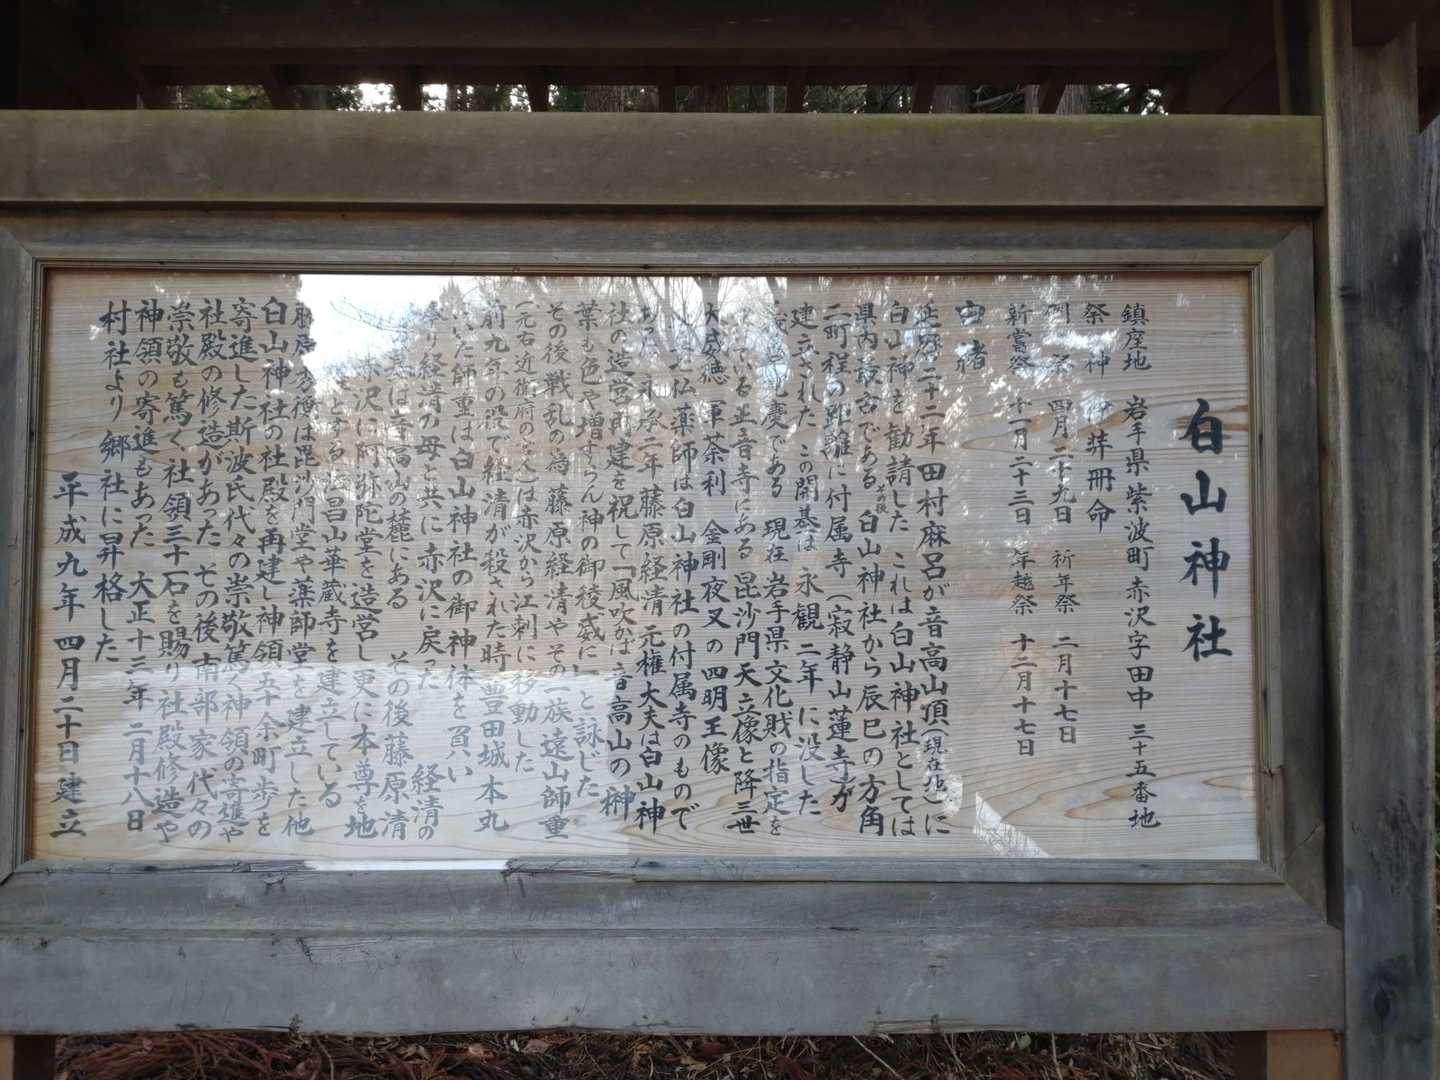 白山神社
鎮座地 岩手県紫波町赤沢字田中 三十五番地
祭神 弉冊命
例祭 四月二十九日 祈年祭 二月十七日
新嘗祭 十一月二十三日 年越祭 十二月十七日
由緒
延暦二十二年田村麻呂が音高山頂(現在地)に
白山神を勧請した これは白山神社としては
県内最古である その後 白山神社から辰巳の方角
二町程の距離に付属寺(寂静山蓮寺)が
建立された この開基は 永観二年に没した
慶である 現在 岩手県文化財の指定を
ている 正音寺にある 毘沙門天立像と降三世
大威徳 軍荼利 金剛夜叉の四明王像
七仏薬師は白山神社の付属寺のもので
永承二年 藤原経清元権大夫は白山神
社の造営再建を祝して「風吹かば 音高山の神
葉も色や増すらん神の御稜威に」と詠じた
その後戦乱の為 藤原経清やその一族遠山師重
(元右近衛府の官人)は赤沢から江刺に移動した
前九年の役で経清が殺された時 豊田城本丸
いた師重は白山神社の御神体を負い
経清の母と共に赤沢に戻った 経清の
は音高山の麓にある その後藤原清
赤沢に阿弥陀堂を造営し更に本尊を地
とする 昌山華蔵寺を建立している
は毘沙門堂や薬師堂を建立した他
白山神社の社殿を再建し神領五十余町歩を
寄進した斯波氏代々の崇敬篤く神領の寄進や
社殿の修造があった その後南部家代々の
崇敬も篤く社領三十一石を賜り社殿修造や
神領の寄進もあった 大正十三年二月十八日
村社より郷社に昇格した
平成九年四月二十日建立